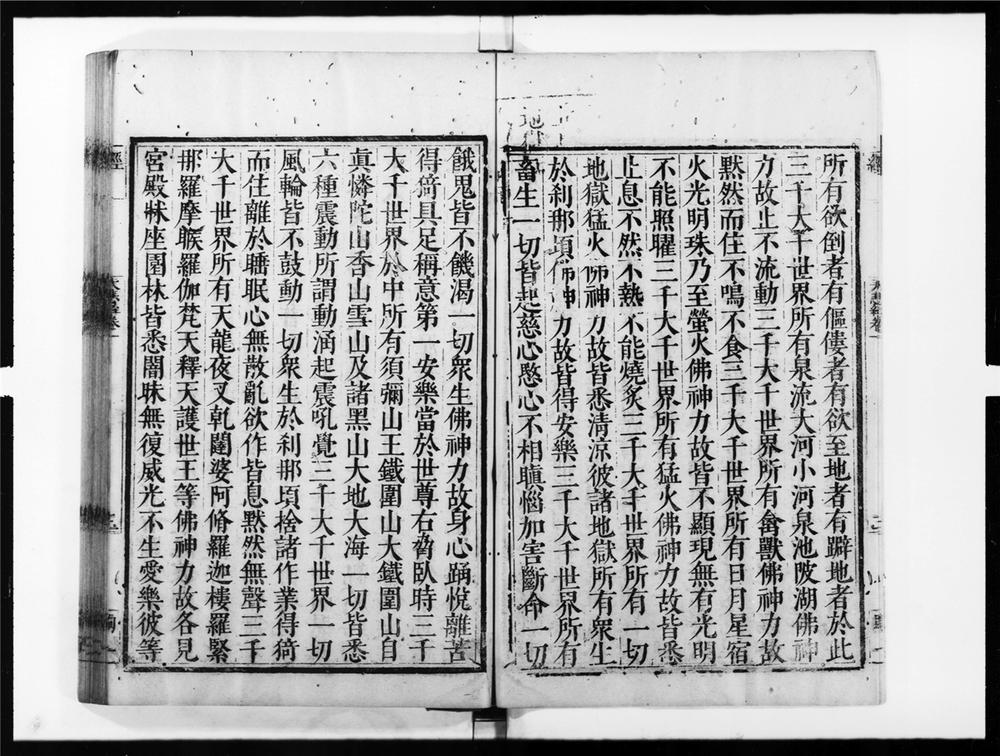 所有欲倒者有傴僂者有欲至地者有躃地者於此
三千大千世界所有泉流大河小河泉池陂湖佛神
力故止不流動三千大千世界所有禽獸佛神力故
黙然而住不鳴不食三千大千世界所有日月星宿
火光明珠乃至螢火佛神力故皆不顯現無有光明
不能照曜三千大千世界所有猛火佛神力故皆悉
止息不然不熱不能燒炙三千大千世界所有一切
地獄猛火佛神力故皆悉清凉彼諸地獄所有衆生
於刹那頃佛神力故皆得安樂三千大千世界所有
畜生一切皆起慈心愍心不相瞋惱加害斷命一切
餓鬼皆不饑渴一切衆生佛神力故身心踊悅離苦
得猗具足稱意第一安樂當於世尊右脅臥時三千
大千世界於中所有須彌山王鐵圍山大鐵圍山自
眞憐陀山香山雪山及諸黑山大地大海一切皆悉
六種震動所謂動涌起震吼覺三千大千世界一切
風輪皆不鼓動一切衆生於刹那頃捨諸作業得猗
而住離於睡眠心無散亂欲作皆息黙然無聲三千
大千世界所有天龍夜叉乹闥婆阿脩羅迦樓羅緊
那羅摩睺羅伽梵天釋天護世王等佛神力故各見
宮殿牀座園林皆悉闇昧無復威光不生愛樂彼等